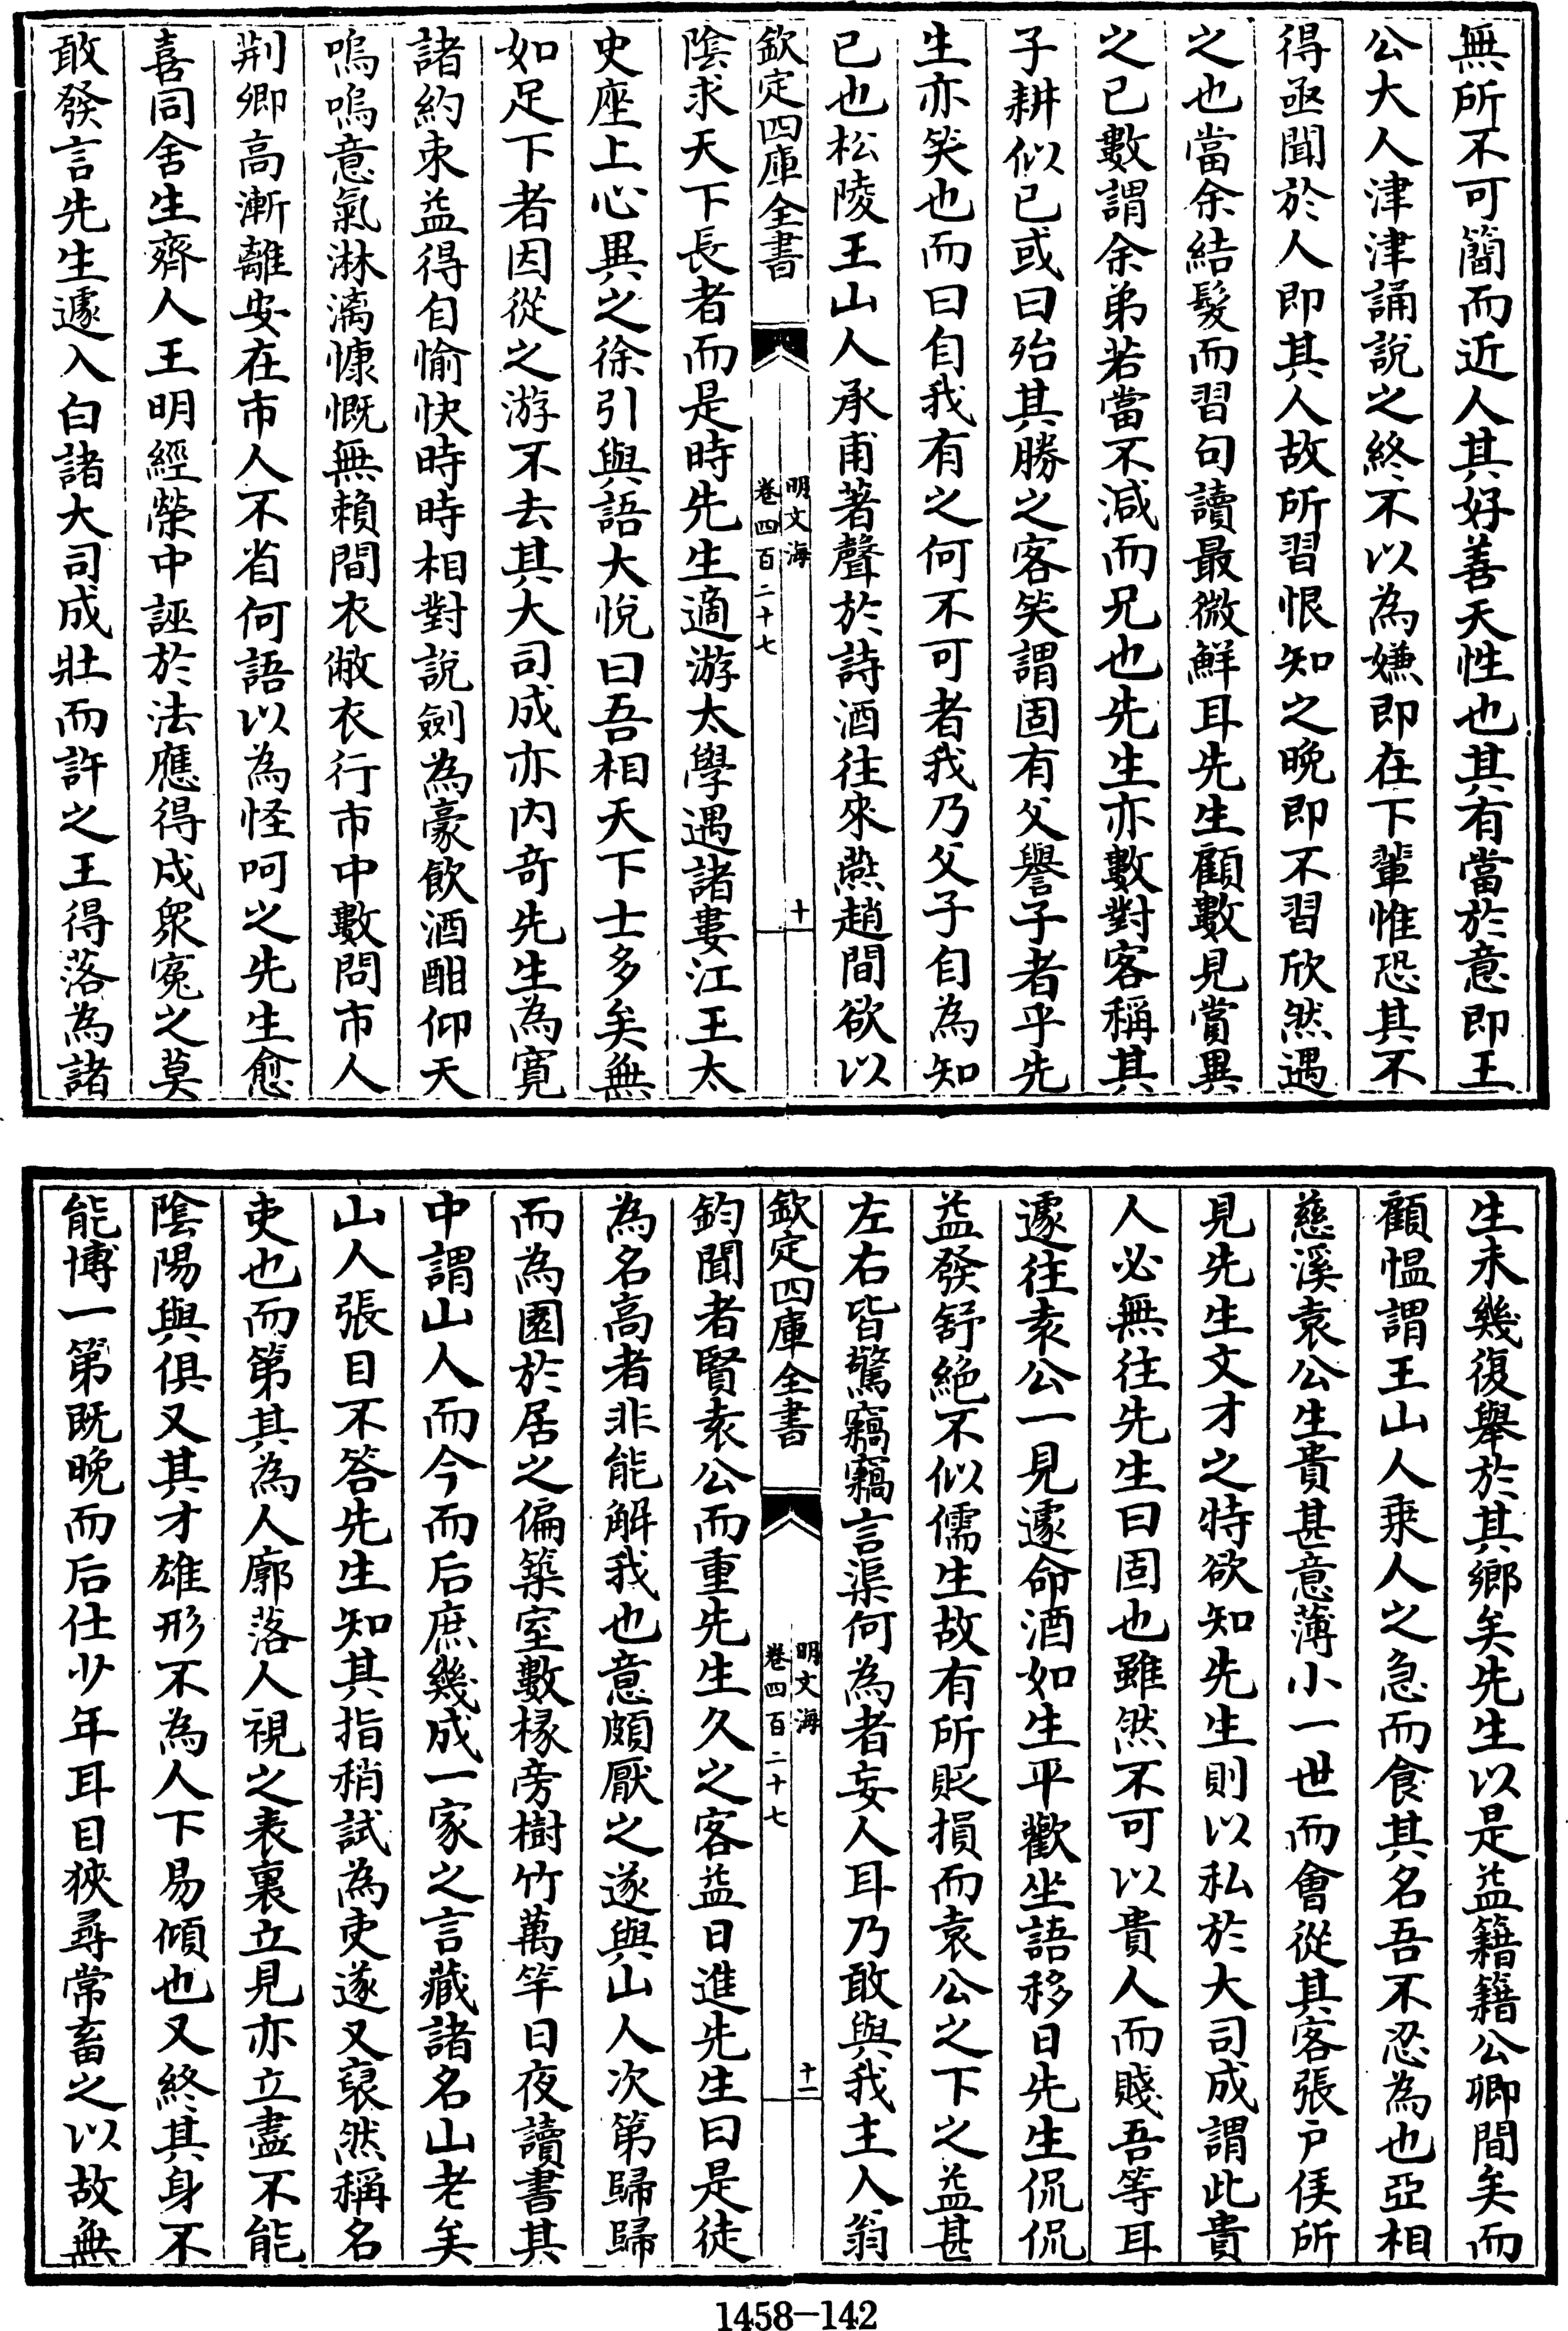 無所不可簡而近人其好善天性也其有當於意即王
公大人津津誦說之終不以為嫌即在下輩惟恐其不
得亟聞於人即其人故所習恨知之晚即不習欣然遇
之也當余結髮而習句讀最微鮮耳先生顧數見賞異
之已數謂余弟若當不減而兄也先生亦數對客稱其
子耕似已或曰殆其勝之客笑謂固有父譽子者乎先
生亦笑也而曰自我有之何不可者我乃父子自為知
已也松陵王山人承甫著聲於詩酒往來燕趙間欲以
欽定四庫全書
明文海
卷四百二十七
十
陰求天下長者而是時先生適游太學遇諸婁江王太
史座上心異之徐引與語大悅曰吾相天下士多矣無
如足下者因從之游不去其大司成亦内奇先生為寛
諸約束益得自愉快時時相對說劍為豪飲酒酣仰天
嗚嗚意氣淋漓慷慨無賴間衣敝衣行市中數問市人
荆卿高漸離安在市人不省何語以為怪呵之先生愈
喜同舍生齊人王明經榮中誣於法應得戍衆寃之莫
敢發言先生遽入白諸大司成壯而許之王得落為諸
生未幾復舉於其鄉矣先生以是益籍籍公卿間矣而
顧愠謂王山人乗人之急而食其名吾不忍為也亞相
慈溪袁公生貴甚意薄小一世而會從其客張戸侯所
見先生文才之特欲知先生則以私於大司成謂此貴
人必無往先生曰固也雖然不可以貴人而賤吾等耳
遽往袁公一見遽命酒如生平歡坐語移日先生侃侃
益發舒絶不似儒生故有所貶損而袁公之下之益甚
左右皆驚竊竊言渠何為者妄人耳乃敢與我主人翁
欽定四庫全書
明文海
卷四百二十七
十一
鈞聞者賢袁公而重先生久之客益日進先生曰是徒
為名高者非能解我也意頗厭之遂與山人次第歸歸
而為園於居之偏築室數椽旁樹竹萬竿日夜讀書其
中謂山人而今而后庶幾成一家之言藏諸名山老矣
山人張目不答先生知其指稍試為吏遂又裒然稱名
吏也而第其為人廓落人視之表裏立見亦立盡不能
陰陽與俱又其才雄形不為人下易傾也又終其身不
能博一第既晚而后仕少年耳目狹尋常畜之以故無
1458-142